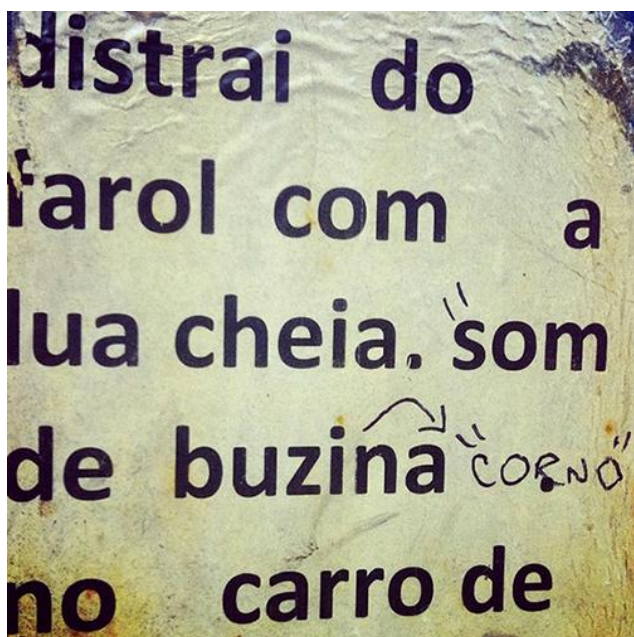 distrai do
farol com a
lua cheia. "som
de buzina "CORNO"
no carro de